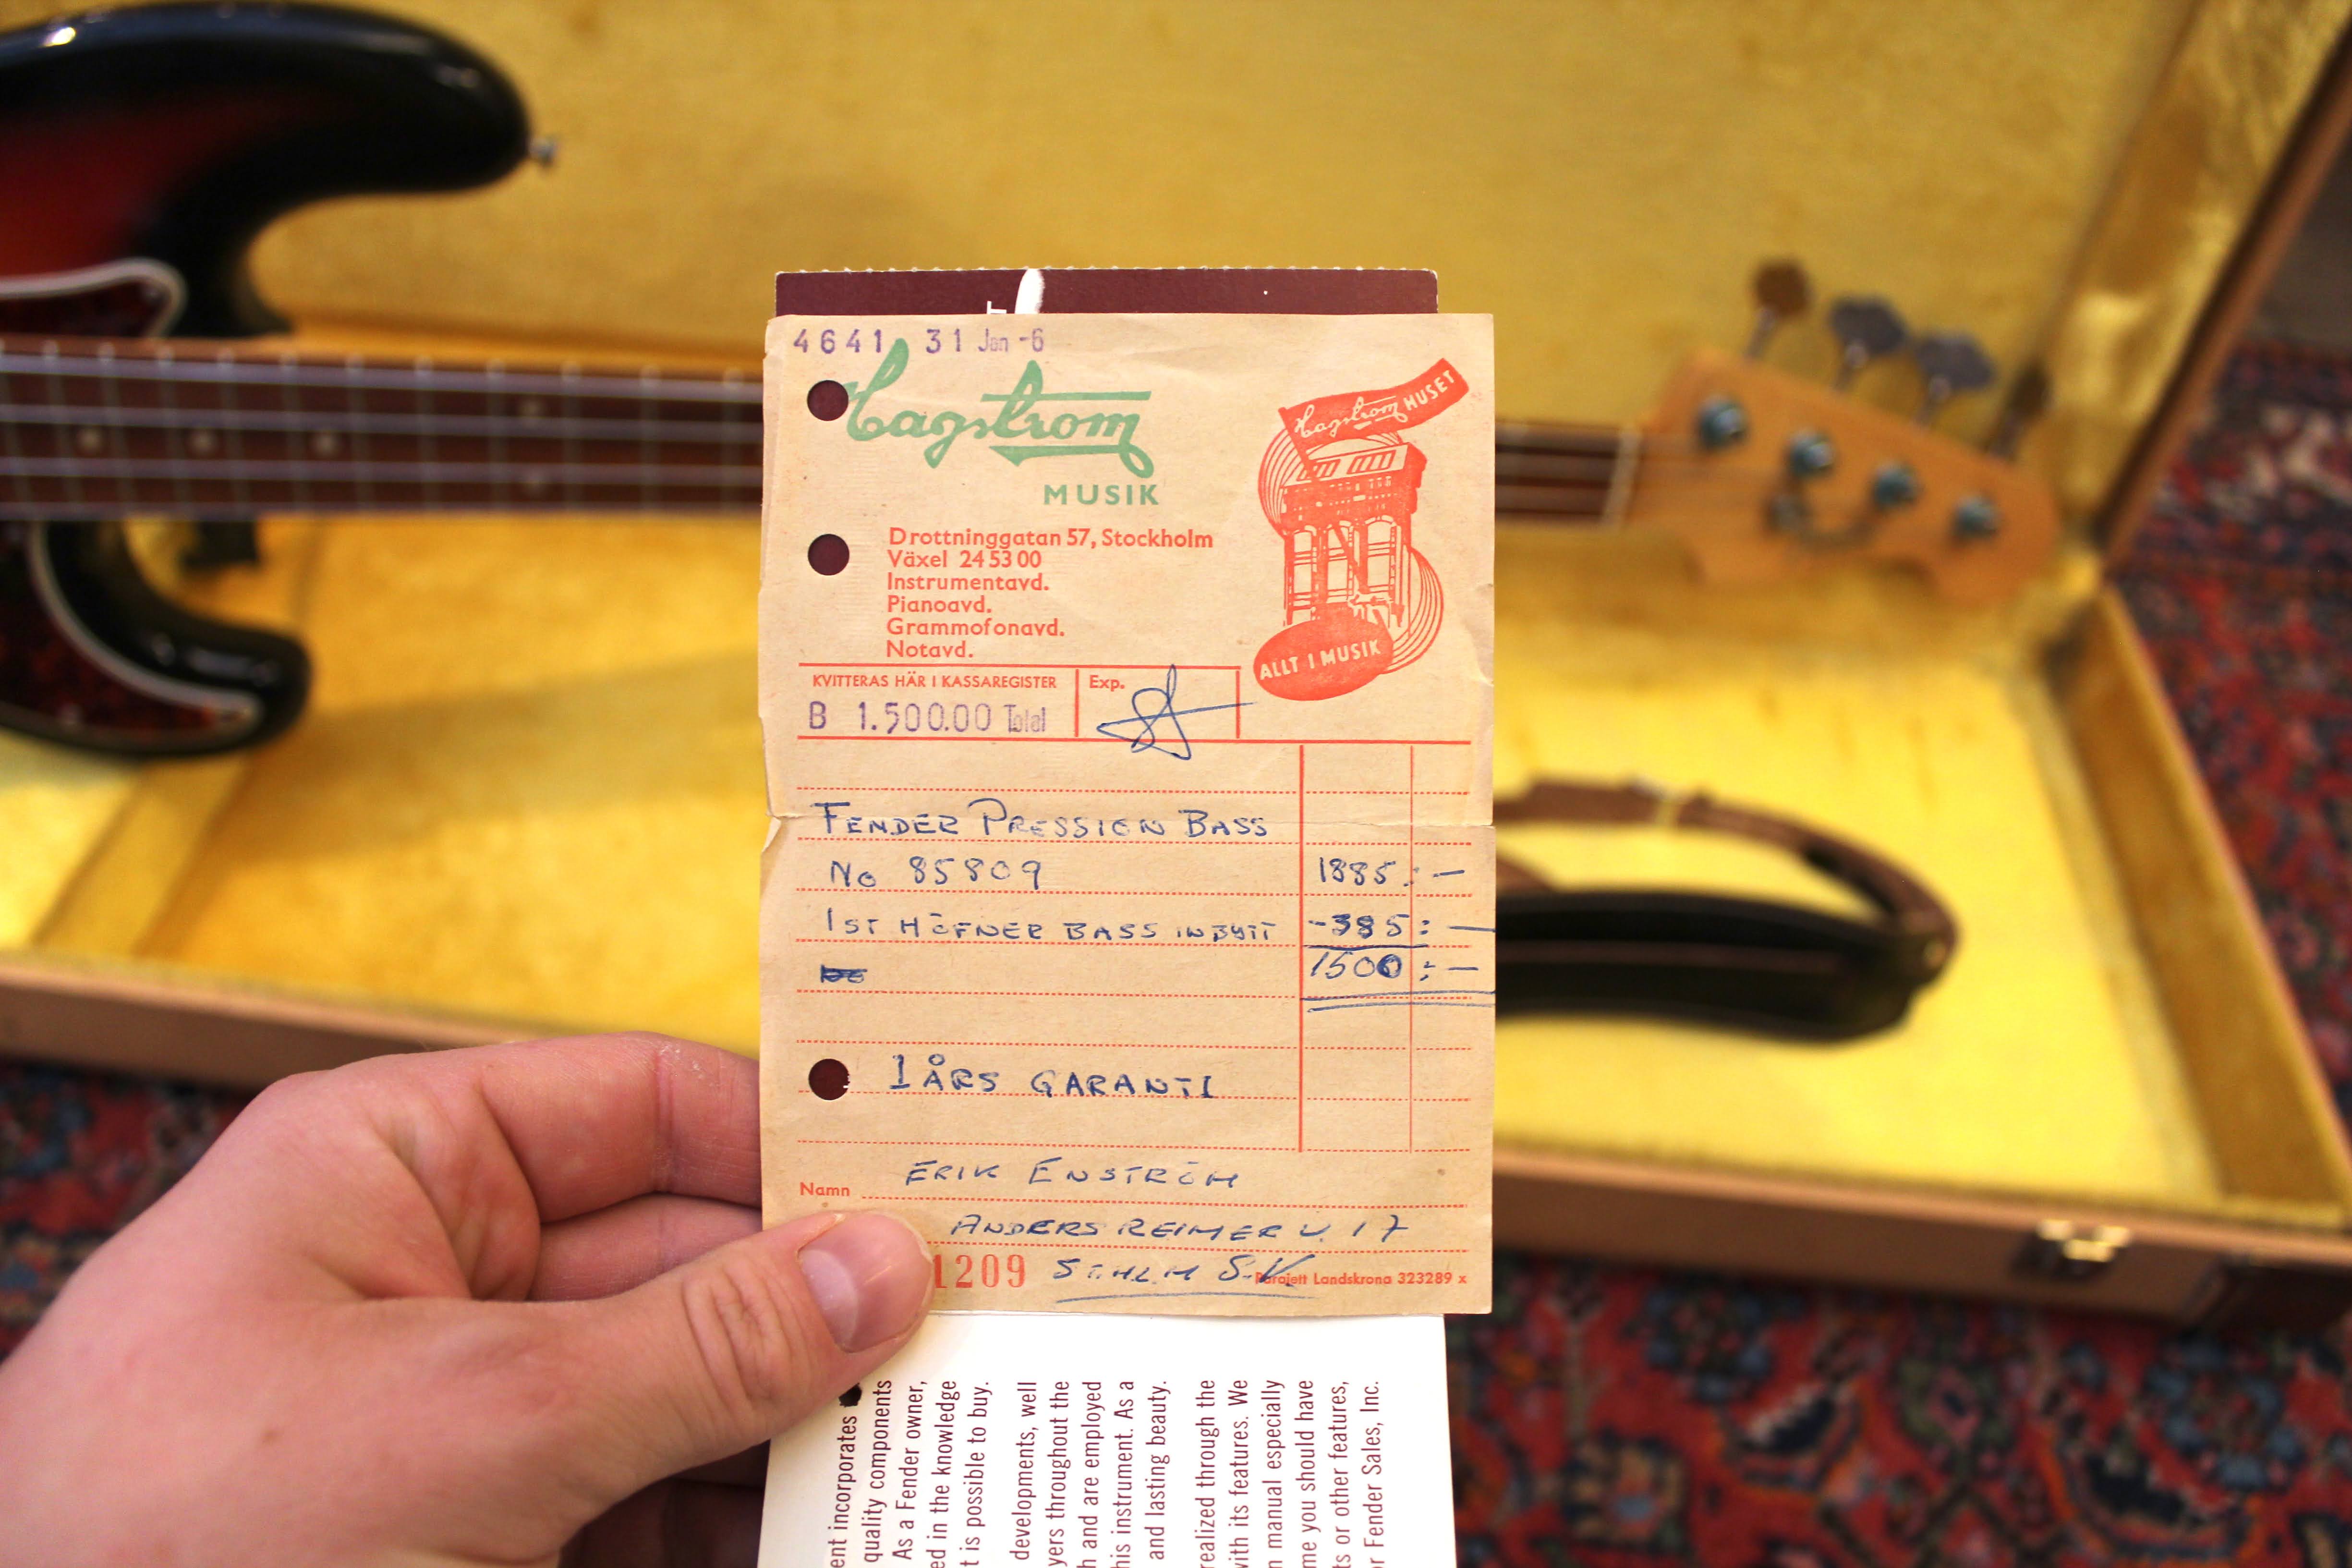 4641 31 Jan -6
Hagstrom
MUSIK
Hagstrom HUSET
ALLT I MUSIK
Drottninggatan 57, Stockholm
Växel 24 53 00
Instrumentavd.
Pianoavd.
Grammofonavd.
Notavd.
KVITTERAS HÄR I KASSAREGISTER Exp.
B 1.500.00 Total
FENDER PRESSION BASS
No 85809 1885:—
1 ST HÖFNER BASS INBYTT -385:—
1500:—
1 ÅRS GARANTI
Namn ERIK ENSTRÖM
ANDERS REIMER V. 17
1209 STHLM S.V.
Parajett Landskrona 323289 x
ent incorporates
quality components
As a Fender owner,
ed in the knowledge
t is possible to buy.
developments, well
yers throughout the
h and are employed
his instrument. As a
and lasting beauty.
realized through the
with its features. We
n manual especially
me you should have
ts or other features,
or Fender Sales, Inc.